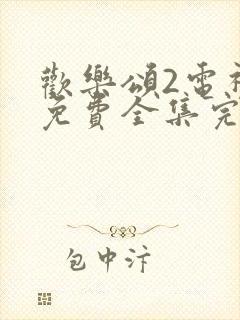 歡樂頌2電視
免費全集完
包中汴